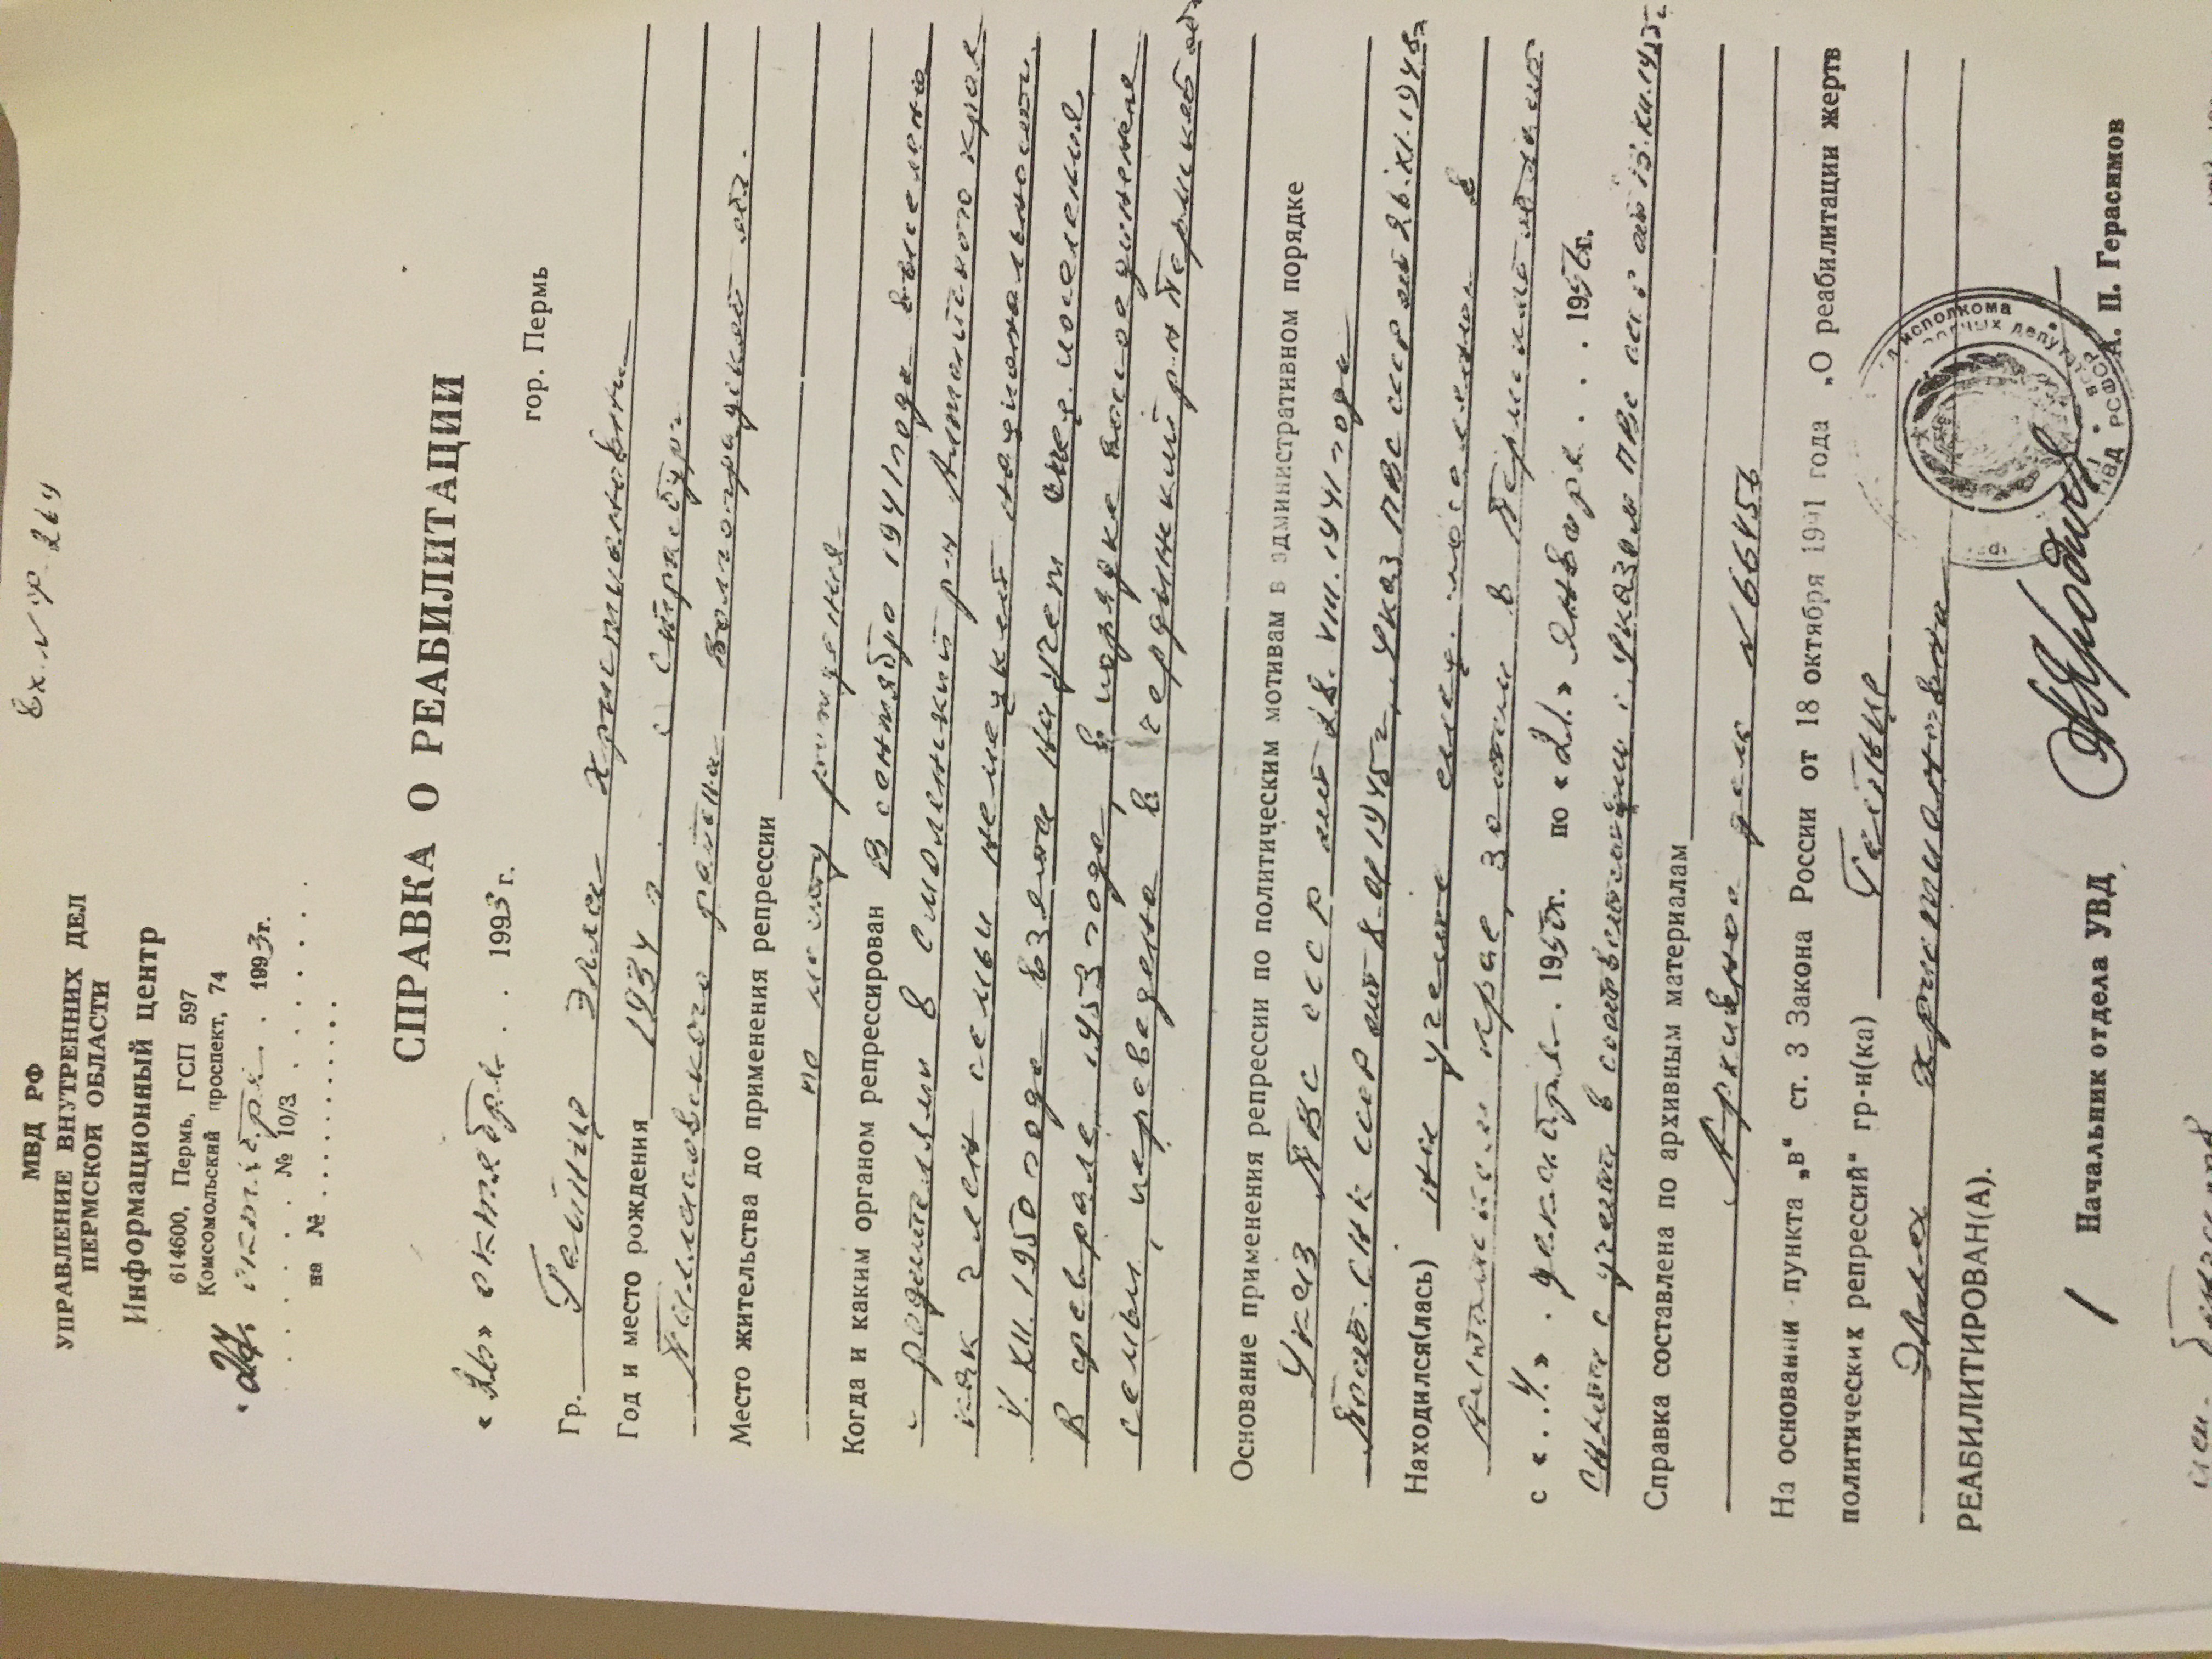 вх. № ф-264
МВД РФ
УПРАВЛЕНИЕ ВНУТРЕННИХ ДЕЛ
ПЕРМСКОЙ ОБЛАСТИ
Информационный центр
614600, Пермь, ГСП 597
Комсомольский проспект, 74
октября . 1993г.
. . . . № 10/3 . . . . . .
на № . . . . . . . . .
СПРАВКА О РЕАБИЛИТАЦИИ
«26» октября . . 1993 г.
гор. Пермь
Гр. Гейнце Элла Христиановна
Год и место рождения 1934 г. с. Страсбург
Палласовского района Волгоградской обл.
Место жительства до применения репрессии
по месту рождения
Когда и каким органом репрессирован В сентябре 1941 года выслана
с родителями в Смоленский р-н Алтайского края
как член семьи немецкой национальности.
4.XII.1950 года взята на учет спец. поселения
В феврале 1953 года, в порядке воссоединения
семьи, переведена в Чердынский р-н Пермской обл.
Основание применения репрессии по политическим мотивам в административном порядке
Указ ПВС СССР от 28.VIII.1941 года
Пост. СНК СССР от 8.01.1945 г, Указ ПВС СССР от 26.XI.1948 г
Находился(лась) на учете спец. поселения в
Алтайском крае, затем в Пермской области
с «. 4 .» . декабря . 1950г. по «21.» января . . . 1956г.
Снята с учета в соответствии с Указом ПВС СССР от 13.XII.1955 г.
Справка составлена по архивным материалам
Архивное дело № 66456
На основании пункта „в" ст. 3 Закона России от 18 октября 1991 года „О реабилитации жертв
политических репрессий" гр-н(ка) Гейнце
Элла Христиановна
РЕАБИЛИТИРОВАН(А).
Начальник отдела УВД
А. П. Герасимов
исполкома
УВД
РСФСР